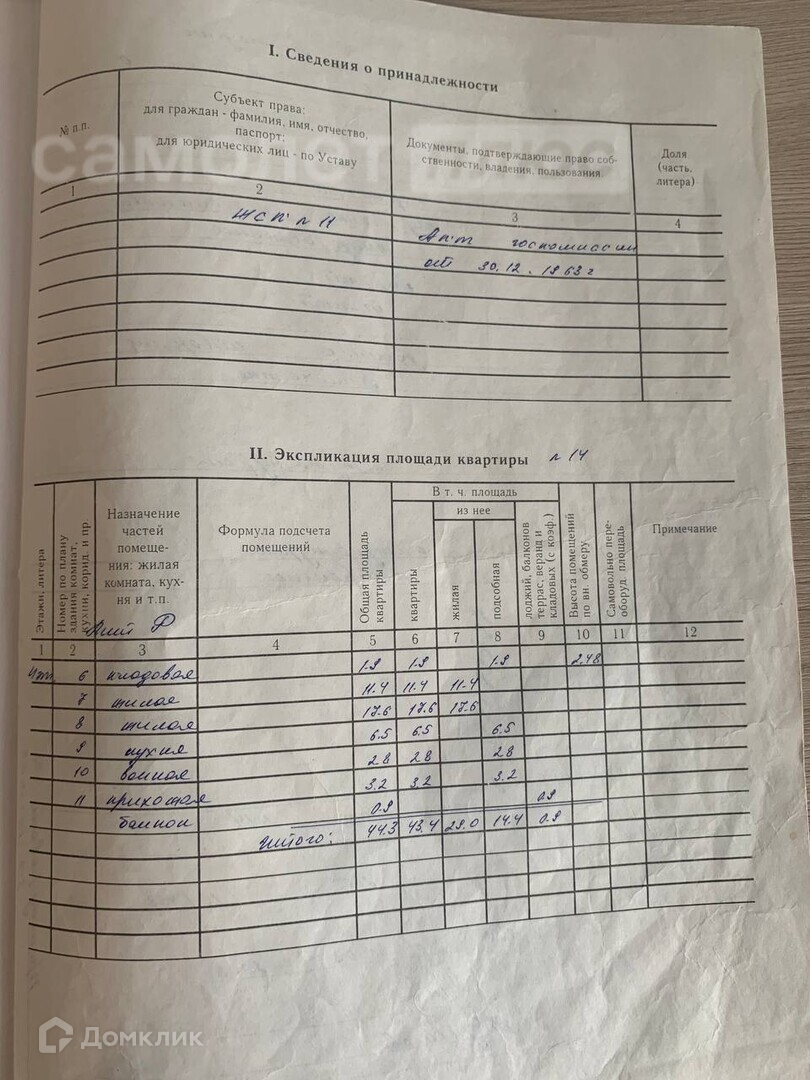 I. Сведения о принадлежности
№ п.п.
Субъект права:
для граждан - фамилия, имя, отчество,
паспорт;
для юридических лиц - по Уставу
Документы, подтверждающие право соб-
ственности, владения, пользования.
Доля
(часть,
литера)
1 2 3 4
ЖСК № 11
Акт госкомиссии
от 30.12.1963 г
II. Экспликация площади квартиры № 14
Этажи, литера
Номер по плану
здания комнат,
кухни, корид. и пр
Назначение
частей
помеще-
ния: жилая
комната, кух-
ня и т.п.
Формула подсчета
помещений
Общая площадь
квартиры
В т. ч. площадь
квартиры
из нее
жилая
подсобная
лоджий, балконов
террас, веранд и
кладовых (с коэф.)
Высота помещений
по вн. обмеру
Самовольно пере-
оборуд. площадь
Примечание
Лит Р
1 2 3 4 5 6 7 8 9 10 11 12
4эт 6 кладовая 1.9 1.9 1.9 2.48
7 жилая 11.4 11.4 11.4
8 жилая 17.6 17.6 17.6
9 кухня 6.5 6.5 6.5
10 ванная 2.8 2.8 2.8
11 прихожая 3.2 3.2 3.2
балкон 0.9 0.9
Итого: 44.3 43.4 29.0 14.4 0.9
Домклик